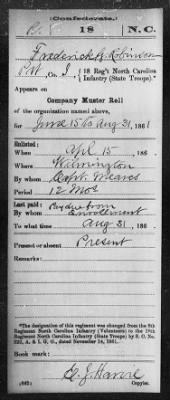 (Confederate.)
R. 18 N.C.
Frederick G. Robinson
Pvt, Co. I, 18 Reg't North Carolina Infantry (State Troops).*
Appears on
Company Muster Roll
of the organization named above,
for June 15 to Aug 31, 1861
Enlisted:
When Apl 15, 186
Where Wilmington
By whom Capt. Meares
Period 12 Mos
Last paid: Pay due from
By whom Enrollment
To what time Aug 31, 186
Present or absent Present
Remarks:
*The designation of this regiment was changed from the 8th
Regiment North Carolina Infantry (Volunteers) to the 18th
Regiment North Carolina Infantry (State Troops) by S. O. No.
222, A. & I. G. O., dated November 14, 1861.
Book mark:
(642)
Copyist.